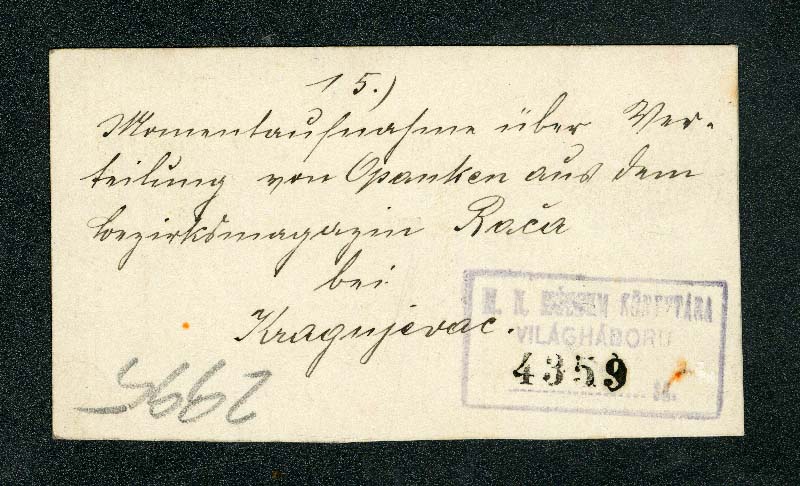 15.)
Momentaufnahme über Ver-
teilung von Opanken aus dem
bezirksmagazin Rača
bei
Kragujevac.
M. N. MÚZEUM KÖNYVTÁRA
VILÁGHÁBORÚ
4359 sz.
2995